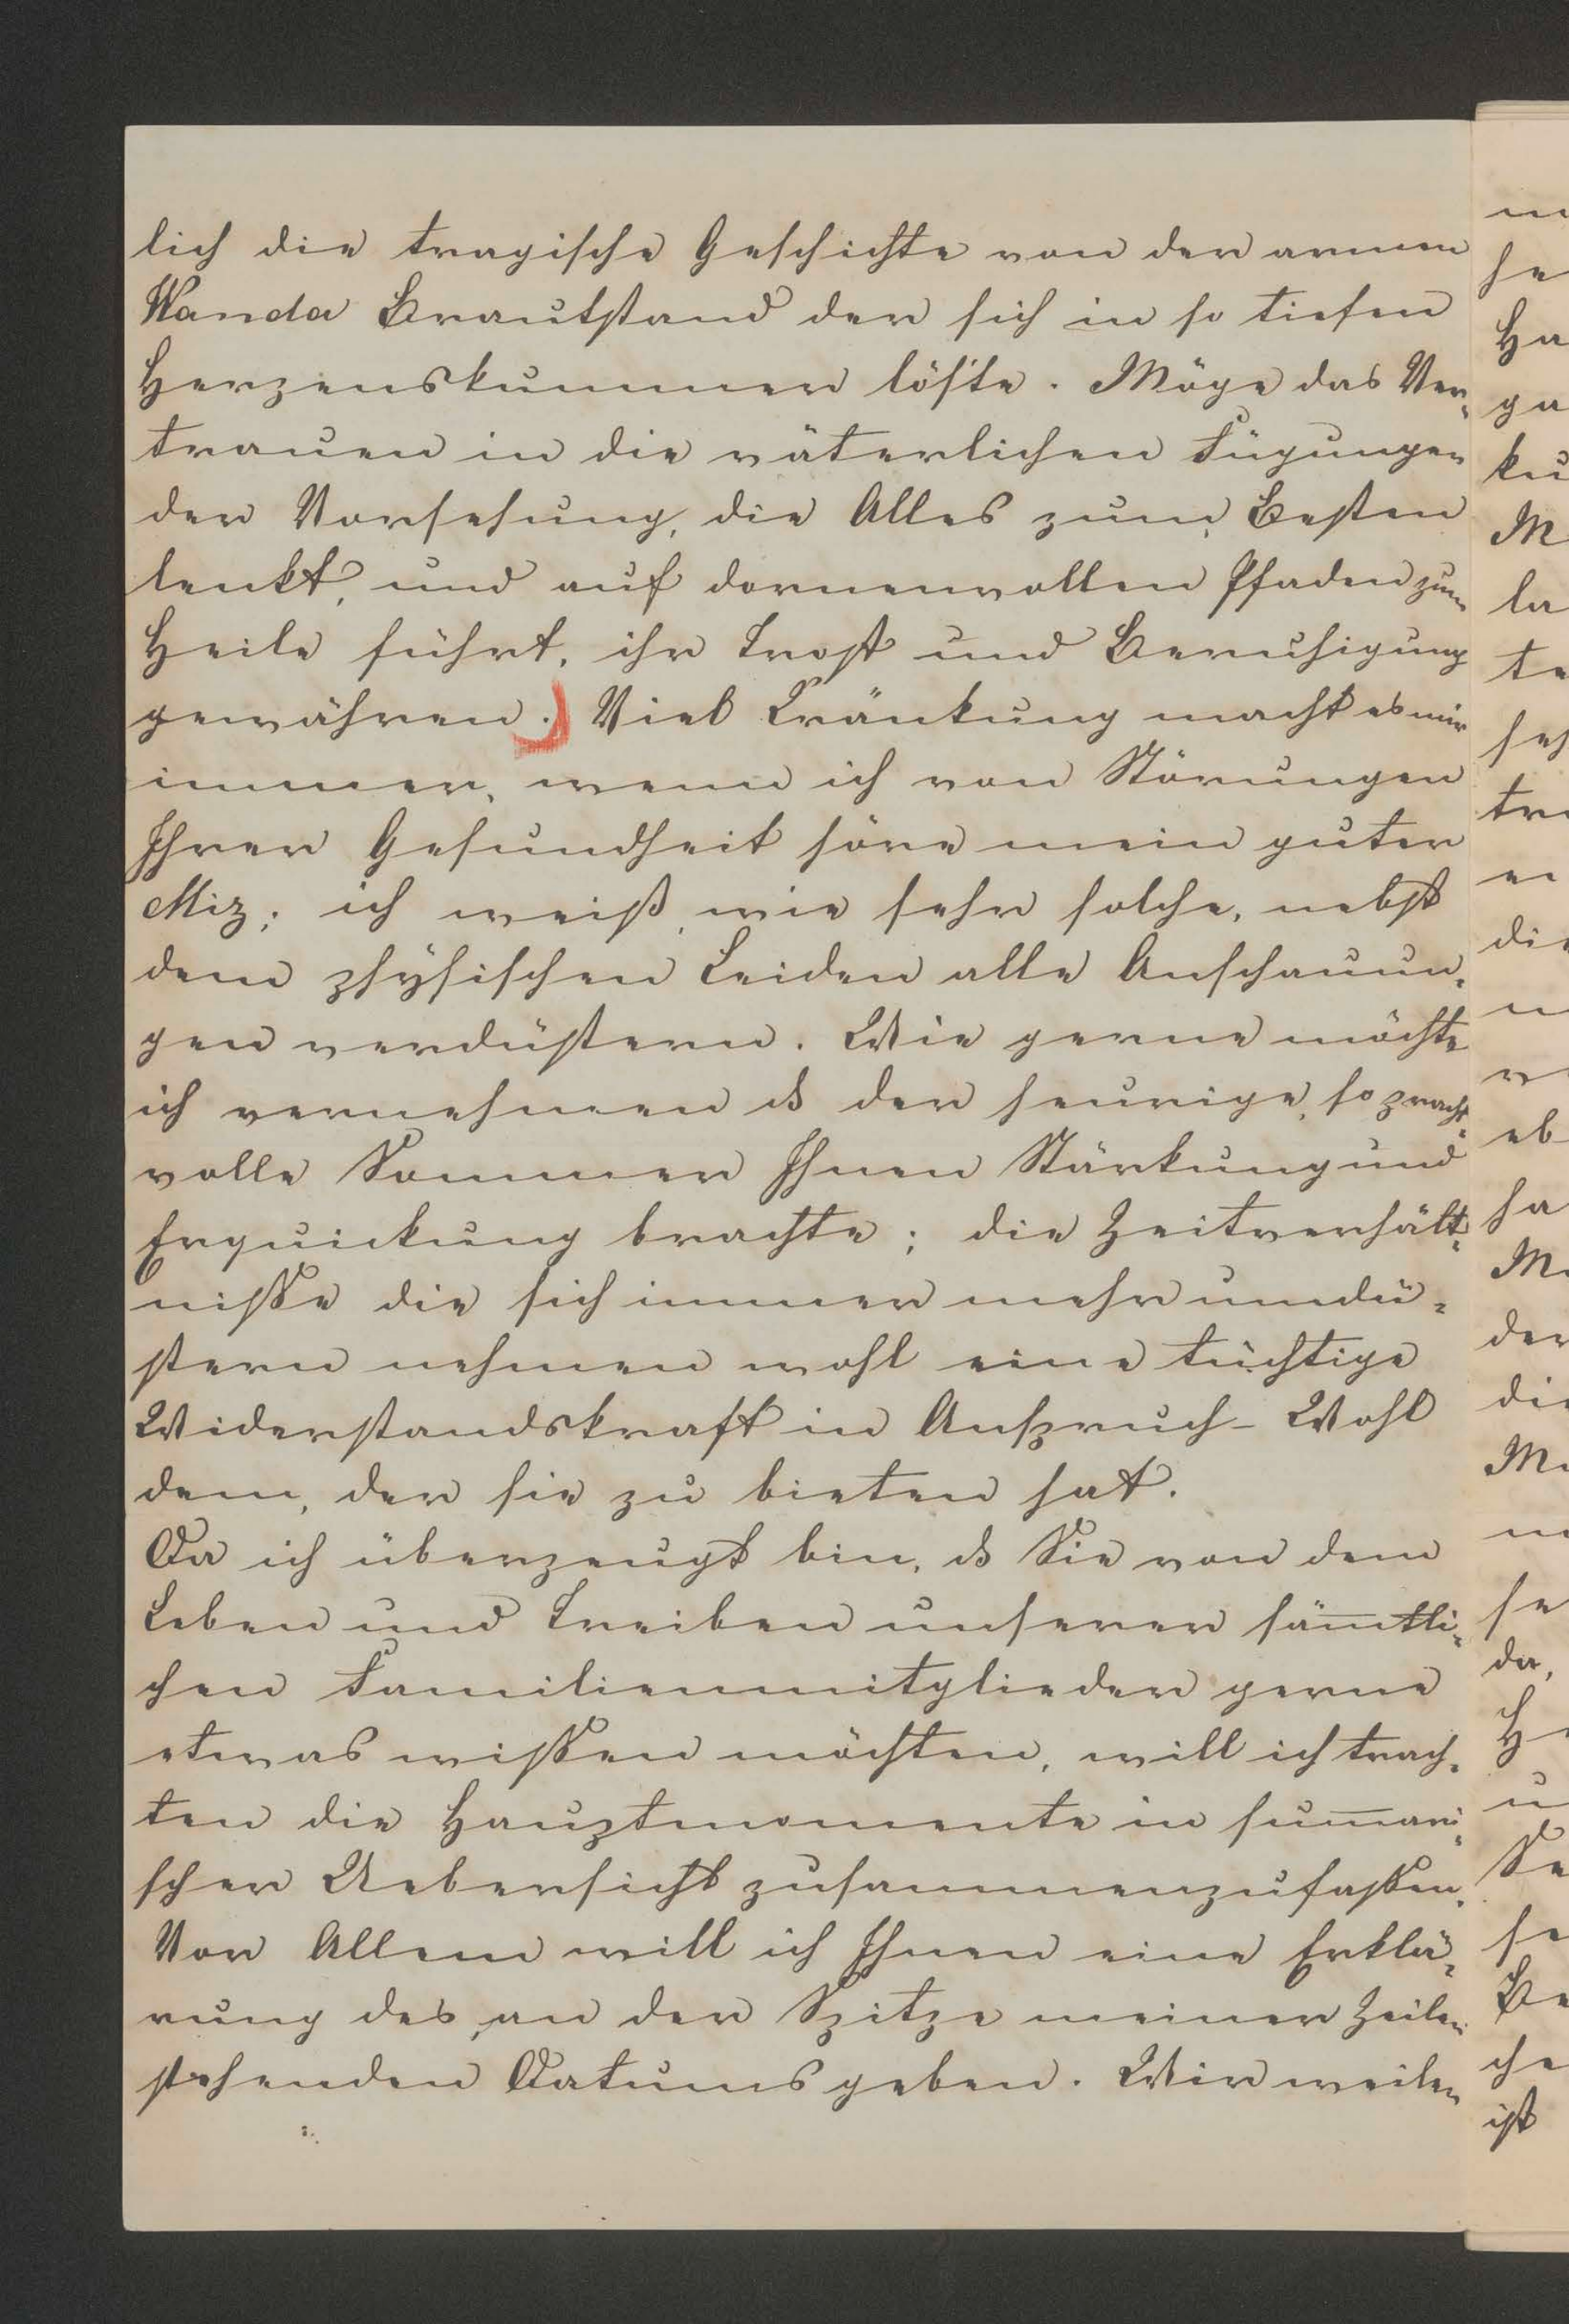 lich die tragische Geschichte von der armen
Wanda Brautstand der sich in so tiefen
Herzenskummer löste. Möge das Ver-
trauen in die väterlichen Fügungen
der Vorsehung, die Alles zum Besten
lenkt, und auf dornenvollen Pfaden zum
Heile führt, ihr Trost und Beruhigung
gewähren. Viel Kränkung macht es mir
immer, wenn ich von Störungen
Ihrer Gesundheit höre mein guter
Miz; ich weiß, wie sehr solche, nebst
dem physischen Leiden alle Anschauun-
gen verdüstern. Wie gerne möchte
ich vernehmen ds der heurige, so pracht-
volle Sommer Ihnen Stärkung und
Erquickung brachte; die Zeitverhält-
nisse die sich immer mehr umdü-
stern nehmen wohl eine tüchtige
Widerstandskraft in Anspruch – Wohl
dem, der sie zu bieten hat.
Da ich überzeugt bin, ds Sie von dem
Leben und Treiben unserer säm̅tli-
chen Familienmitglieder gerne
etwas wissen möchten, will ich trach-
ten die Hauptmomente in sum̅ari-
scher Uebersicht zusammenzufassen.
Vor Allem will ich Ihnen eine Erklä-
rung des, an der Spitze meiner Zeilen
stehenden Datums geben. Wir weilen